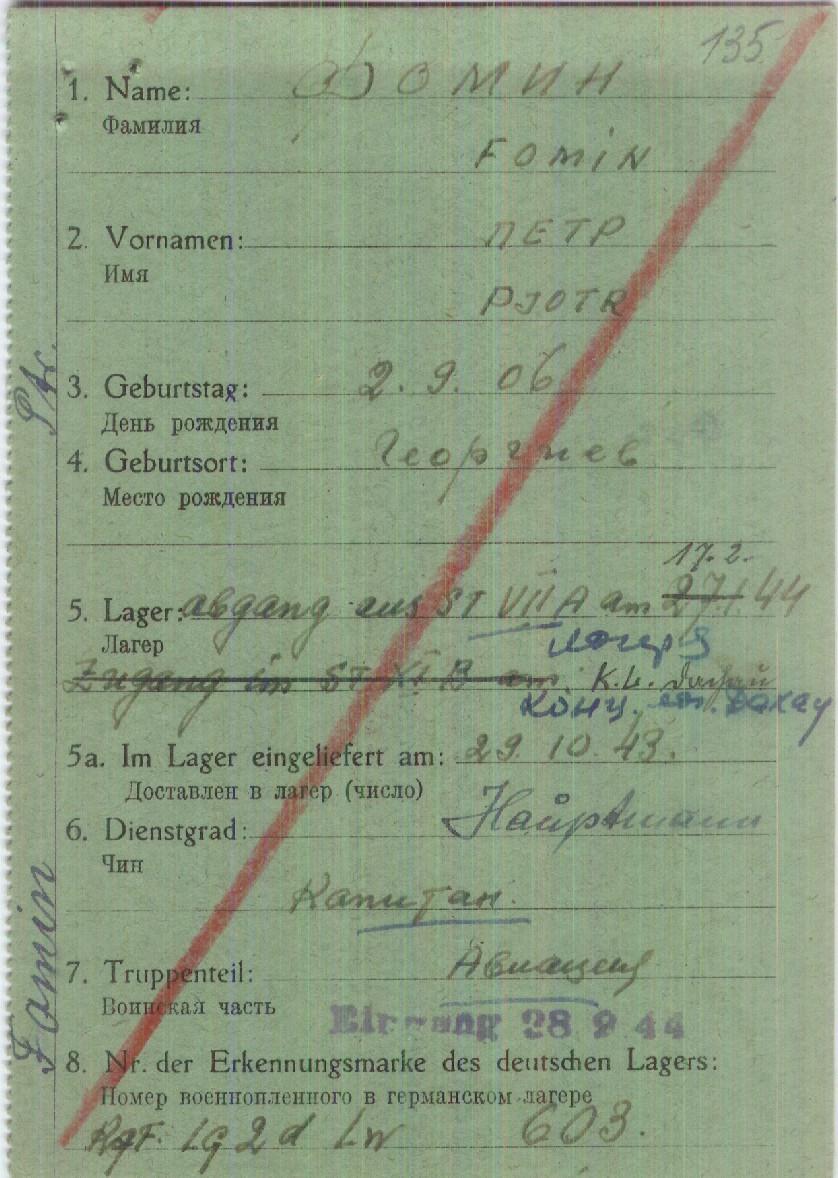 135
1. Name: ФОМИН
Фамилия
FOMIN
2. Vornamen: ПЕТР
Имя
PJOTR
3. Geburtstag: 2. 9. 06
День рождения
4. Geburtsort: Георгиев
Место рождения
17. 2.
5. Lager: abgang aus ST VII A am 27.1. 44
Лагер лагерь
Zugang im ST XI B am. K. L. Dachau
конц. Дахау
5a. Im Lager eingeliefert am: 29. 10. 43.
Доставлен в лагер (число)
6. Dienstgrad: Hauptmann
Чин
Капитан.
7. Truppenteil: Авиация
Воинская часть
Eingang 28 2 44
8. Nr. der Erkennungsmarke des deutschen Lagers:
Номер военнопленного в германском лагере
KgF. Lg 2 d Lw 603.
Fomin